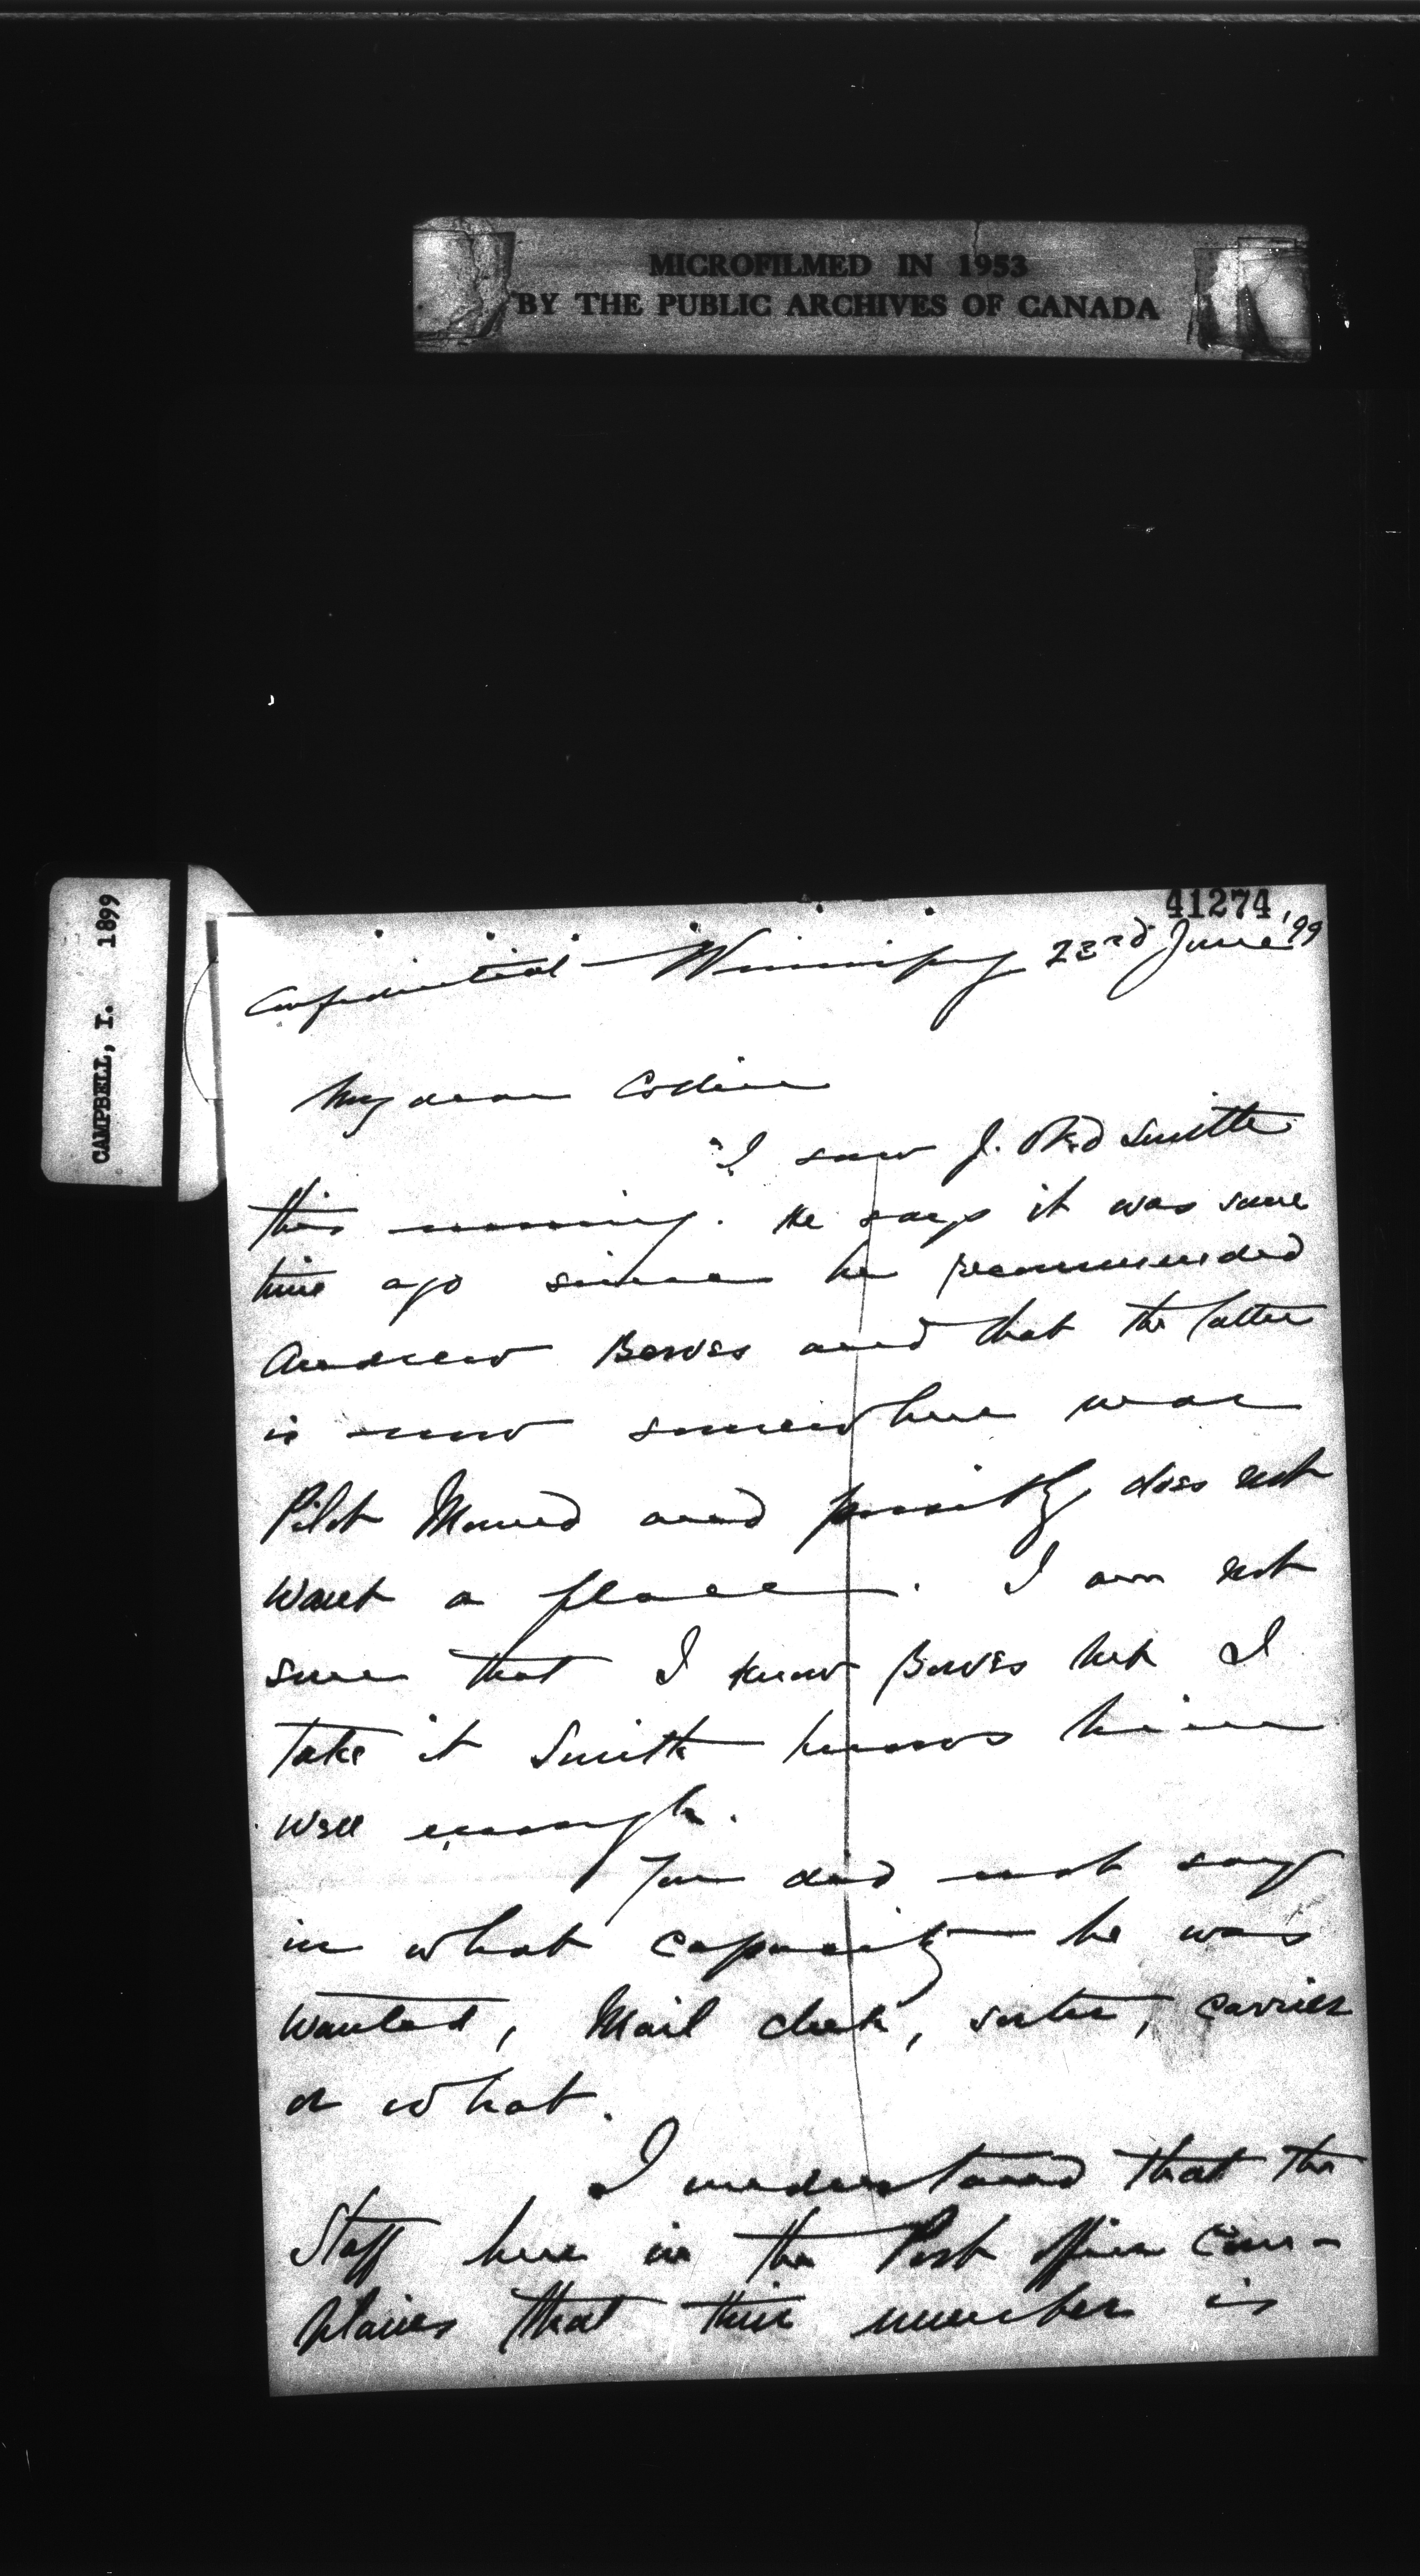 MICROFILMED IN 1953
BY THE PUBLIC ARCHIVES OF CANADA
CAMPBELL, I. 1899
41274
Confidential Winnipeg 23rd June '99
My dear Collier
I saw J. Obed Smith
this morning. He says it was some
time ago since he recommended
Andrew Bowes and that the latter
is now somewhere near
Pilot Mound and possibly does not
want a place. I am not
sure that I know Bowes but I
take it Smith knows him
well enough.
You did not say
in what capacity he was
wanted, Mail clerk, sorter, carrier
or what.
I understand that the
Staff here in the Post office com-
plains that their number is